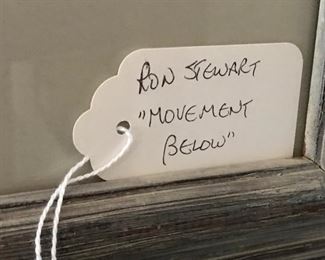 RON STEWART
"MOVEMENT
BELOW"